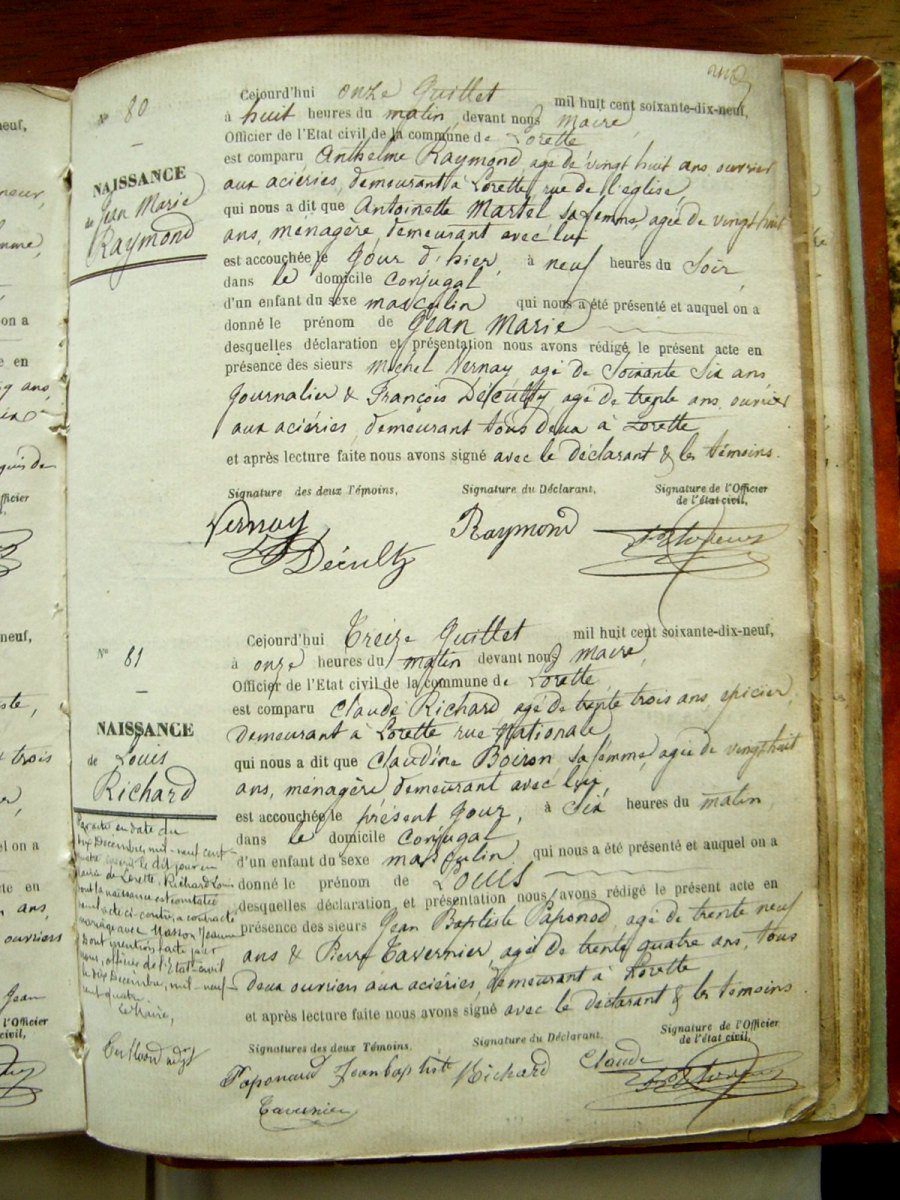 N° 80
NAISSANCE
de Jean Marie
Raymond
Cejourd'hui onze Juillet mil huit cent soixante-dix-neuf,
à huit heures du matin, devant nous maire,
Officier de l'Etat civil de la commune de Lorette
est comparu Anthelme Raymond agé de vingt huit ans ouvrier
aux aciéries, demeurant à Lorette, rue de l'église
qui nous a dit que Antoinette Martel sa femme, agée de vingt huit
ans, ménagère, demeurant avec lui
est accouchée le jour d'hier, à neuf heures du soir
dans le domicile conjugal
d'un enfant du sexe masculin qui nous a été présenté et auquel on a
donné le prénom de Jean Marie
desquelles déclaration et présentation nous avons rédigé le présent acte en
présence des sieurs Michel Vernay agé de soixante six ans
journalier & François Décultz agé de trente ans, ouvrier
aux aciéries, demeurant tous deux à Lorette
et après lecture faite nous avons signé avec le déclarant & les témoins.
Signature des deux Témoins, Signature du Déclarant, Signature de l'Officier
de l'état civil,
Vernay Raymond
Décultz
N° 81
NAISSANCE
de Louis
Richard
Cejourd'hui Treize Juillet mil huit cent soixante-dix-neuf,
à onze heures du matin devant nous maire,
Officier de l'Etat civil de la commune de Lorette
est comparu Claude Richard agé de trente trois ans, epicier,
demeurant à Lorette rue Nationale
qui nous a dit que Claudine Boiron sa femme, agée de vingt huit
ans, ménagère, demeurant avec lui,
est accouchée le présent jour, à six heures du matin
dans le domicile conjugal
d'un enfant du sexe masculin qui nous a été présenté et auquel on a
donné le prénom de Louis
desquelles déclaration et présentation nous avons rédigé le présent acte en
présence des sieurs Jean Baptiste Paponod, agé de trente neuf
ans & Pierre Tavernier, agé de trente quatre ans, tous
deux ouvriers aux aciéries, demeurant à Lorette
et après lecture faite nous avons signé avec le déclarant & les témoins.
Signatures des deux Témoins, Signature du Déclarant, Signature de l'Officier
de l'état civil,
Paponaud Jean baptiste Richard Claude
Tavernier
Par acte en date du
dix Decembre, mil-neuf cent
quatre le dit jour en
mairie de Lorette, Richard Louis
dont la naissance est constatée
acte ci-contre, a contracté
mariage avec Masson Jeanne
Dont mention faite par
nous, officier de l'Etat-civil
le dix Decembre, mil-neuf-
cent-quatre.
Le Maire,